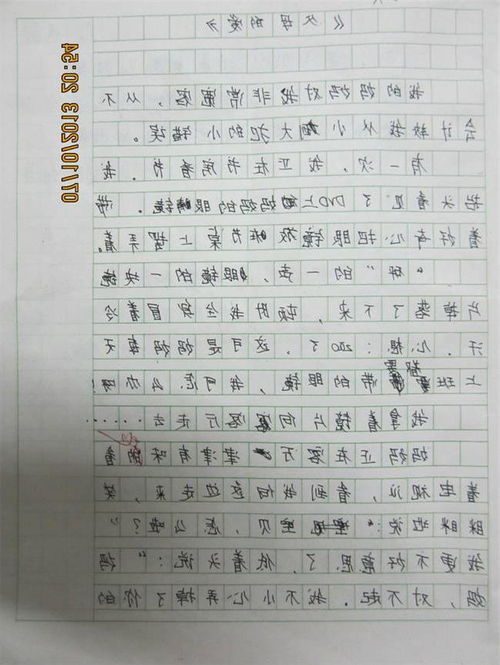 《父母的爱》
我的妈妈对我非常宽容,从不
会计较我从小大犯的小错误。
有一次,我正在书房看书。我
抬头看见了DVD上妈妈的眼镜。带
着好奇心把眼镜放在书桌上摆弄着。
"砰"的一声,眼镜的一块镜
片掉落了下来,顿时我全身冒着冷
汗。心想:200了,这可是妈妈每天
上班都要带的眼镜,我可怎么办啊
我拿着镜片向客厅走去……
妈妈正在客厅津津有味的看
着电视,看到我向她走来,笑
眯眯地说:"宝贝,怎么啦?"
我更不好意思了,低着头说:"妈
妈,对不起。我不小心弄掉了你的
07/01/2013 20:54